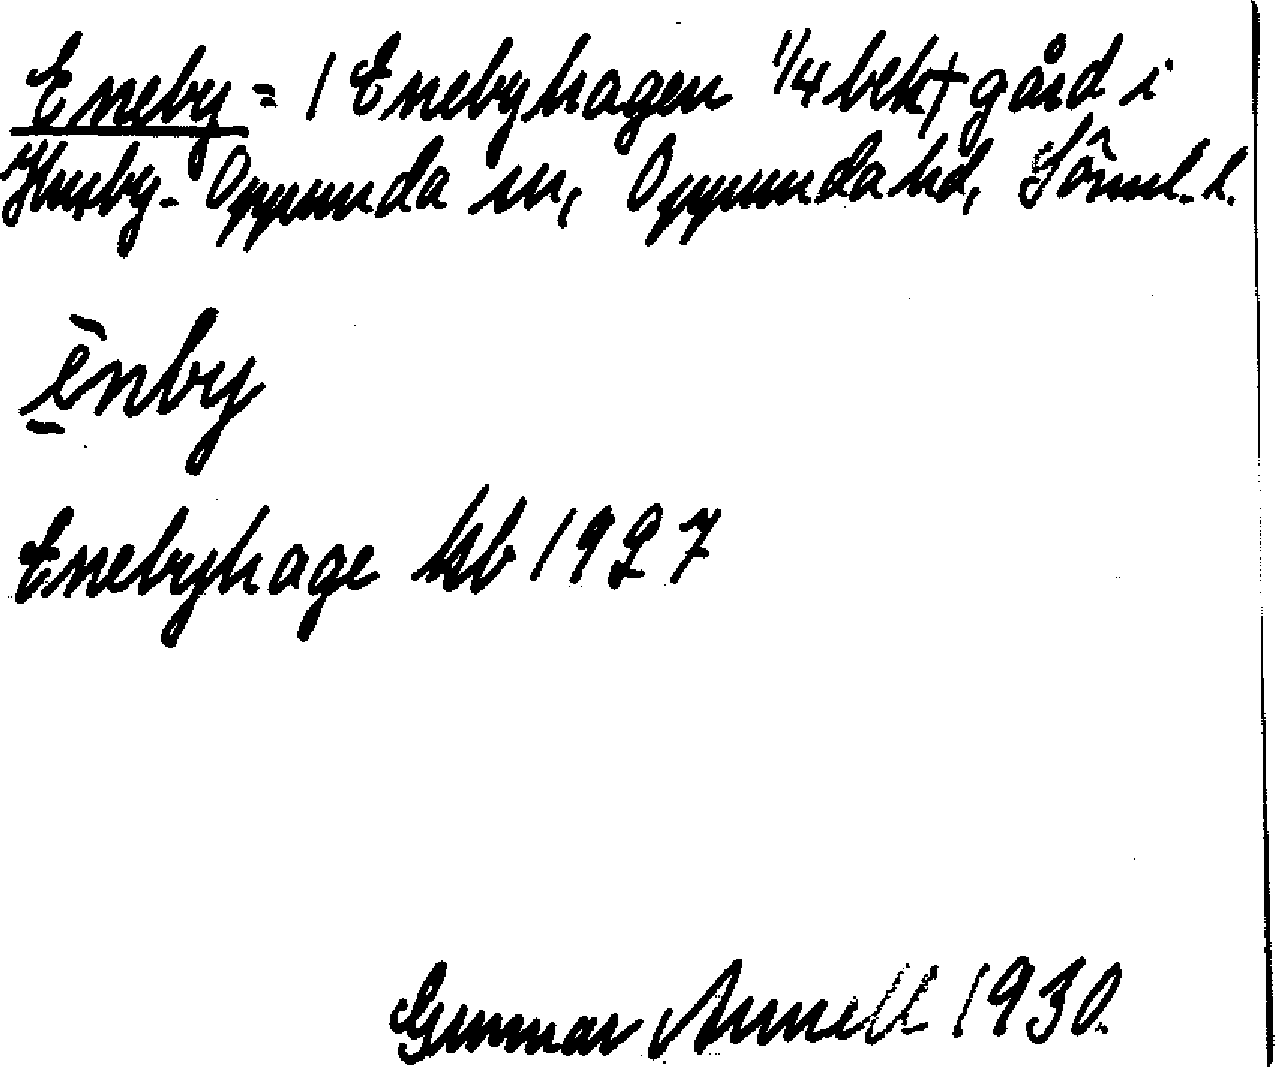 Eneby = 1 Enebyhagen 1/4 bekt gård i
Husby-Oppunda sn, Oppunda hd, Sörml. l.
ēnby
Enebyhage kb 1927
Gunnar Annell 1930.